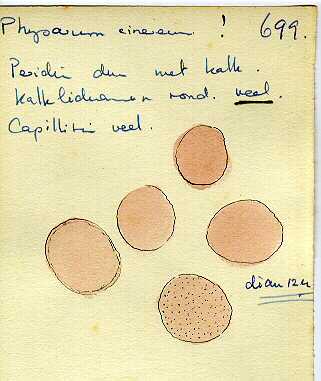 Physarum cinereum ! 699.
Peridie dun met kalk.
kalklichamen rond. veel.
Capillitie veel.
diam 12 µ